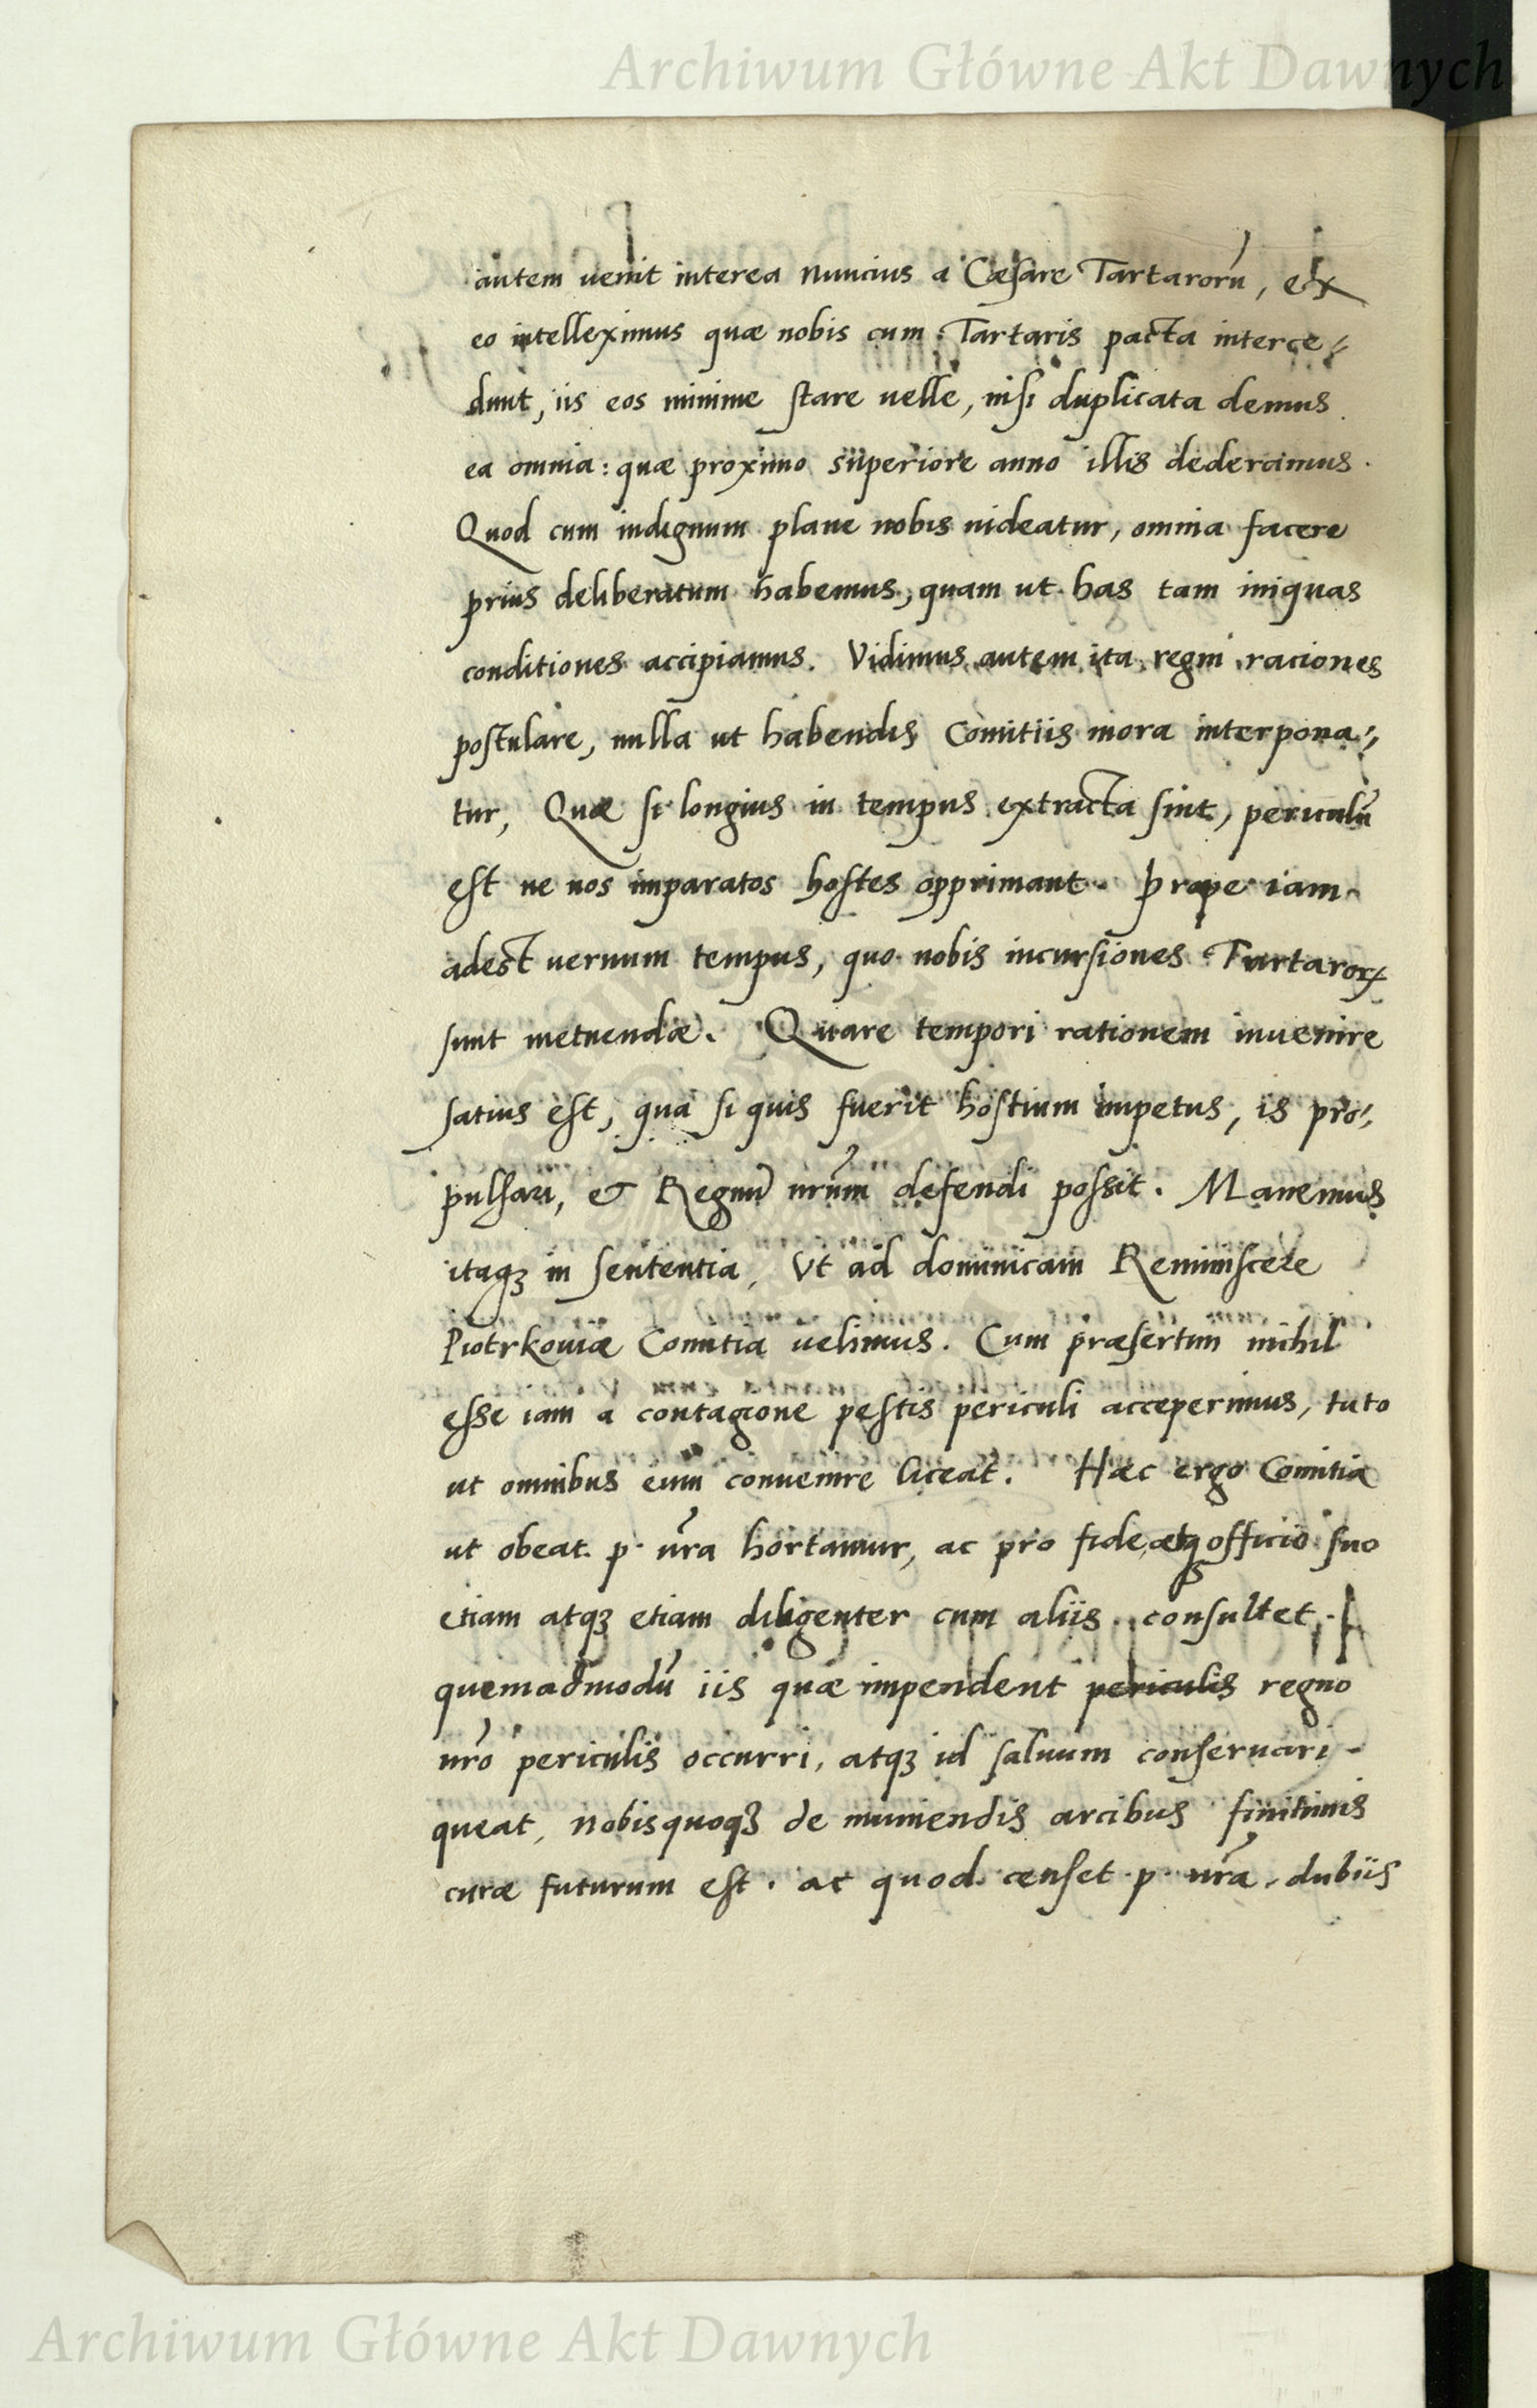 Archiwum Główne Akt Dawnych
autem uenit interea nuncius a Cæsare Tartarorũ, ex
eo intelleximus quæ nobis cum Tartaris pacta interce-
dunt, iis eos minime stare uelle, nisi duplicata demus
ea omnia: quæ proximo superiore anno illis dederamus.
Quod cum indignum plane nobis uideatur, omnia facere
prius deliberatum habemus, quam ut has tam iniquas
conditiones accipiamus. Vidimus autem ita regni raciones
postulare, nulla ut habendis Comitiis mora interpona-
tur, Quæ si longius in tempus extracta sint, periculũ
est ne nos imparatos hostes opprimant. Prope iam
adest uernum tempus, quo nobis incursiones Tartaroꝝ
sunt metuendæ. Quare tempori rationem inuenire
satius est, qua si quis fuerit hostium impetus, is pro-
pulsari, & Regnũ nr̃um defendi possit. Manemus
itaqꝫ in sententia, Vt ad dominicam Reminiscere
Piotrkouiæ Comitia uelimus. Cum præsertim nihil
esse iam a contagione pestis periculi acceperimus, tuto
ut omnibus eum conuenire liceat. Hæc ergo Comitia
ut obeat p. ur̃a hortamur, ac pro fide atqꝫ officio suo
etiam atqꝫ etiam diligenter cum aliis consultet,
quemadmodũ iis quæ impendent periculis regno
nr̃o periculis occurri, atqꝫ id saluum conseruari
queat, nobis quoqꝫ de muniendis arcibus finitimis
curæ futurum est. ac quod censet p. ur̃a, dubiis
Archiwum Główne Akt Dawnych